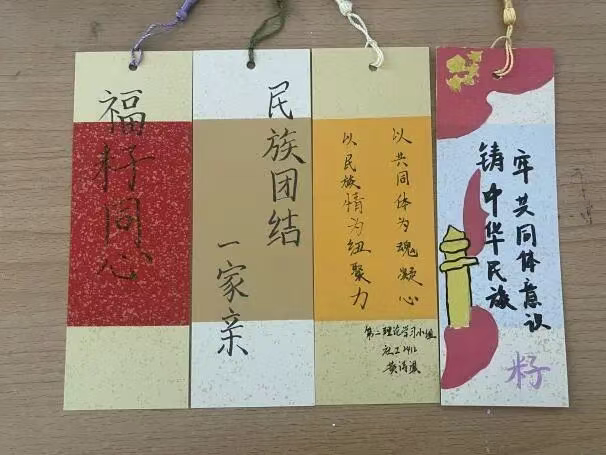 福籽同心
民族团结
一家亲
以共同体为魂凝心
以民族情为纽聚力
第二理论学习小组
社工2412
铸中华民族
牢共同体意识
籽